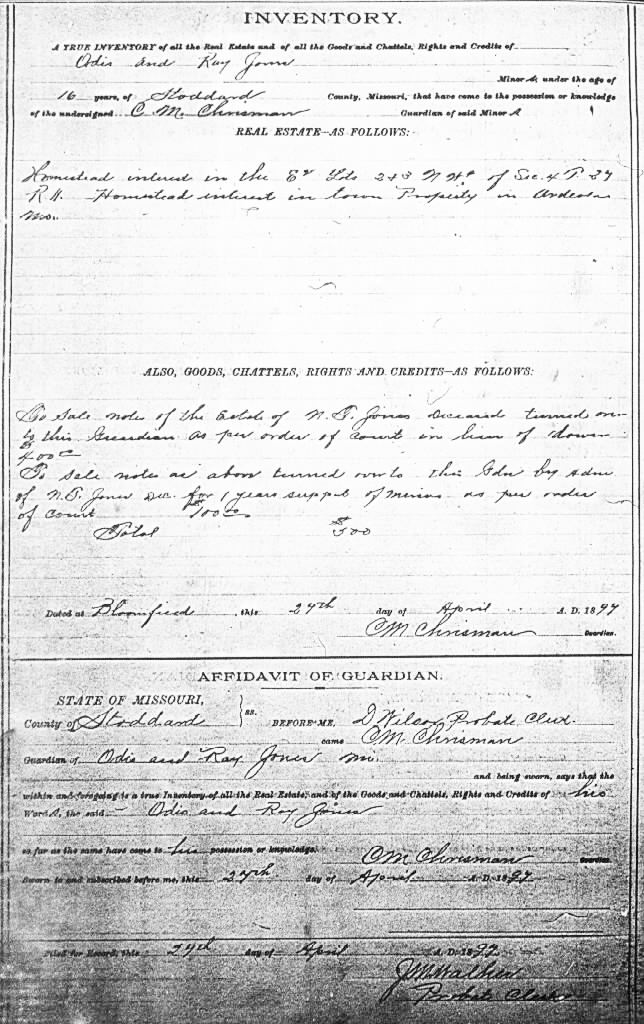 INVENTORY.
A TRUE INVENTORY of all the Real Estate and of all the Goods and Chattels, Rights and Credits of
Odis and Ray Jones
Minor s, under the age of
16 years, of Stoddard County, Missouri, that have come to the possession or knowledge
of the undersigned C. M. Chrisman Guardian of said Minor s
REAL ESTATE—AS FOLLOWS:
Homestead interest in the Lots 2+3 of Sec. 4 T. 27
R 11. Homestead interest in town Property in Ardeola
Mo.
ALSO, GOODS, CHATTELS, RIGHTS AND CREDITS—AS FOLLOWS:
To Sale notes of the Estate of Jones Deceased turned over
to this Guardian as per order of Court in lieu of dower
$400
To sale notes as above turned over to this Gdn by Adm
of Jones Dec. for 1 years support of minors as per order
of Court $100
Total $500
Dated at Bloomfield, this 27th day of April A. D. 1897
C M Chrisman Guardian.
AFFIDAVIT OF GUARDIAN.
STATE OF MISSOURI,
County of Stoddard } ss. BEFORE ME, D Wilcox Probate Clerk.
came C M Chrisman
Guardian of Odis and Ray Jones
and being sworn, says that the
within and foregoing is a true Inventory of all the Real Estate, and of the Goods and Chattels, Rights and Credits of his
Ward s, the said Odis and Ray Jones
so far as the same have come to his possession or knowledge.
C M Chrisman Guardian
Sworn to and subscribed before me, this 27th day of April A. D. 1897
Filed for Record, this 29th day of April A. D. 1897
Walker
Probate Clerk